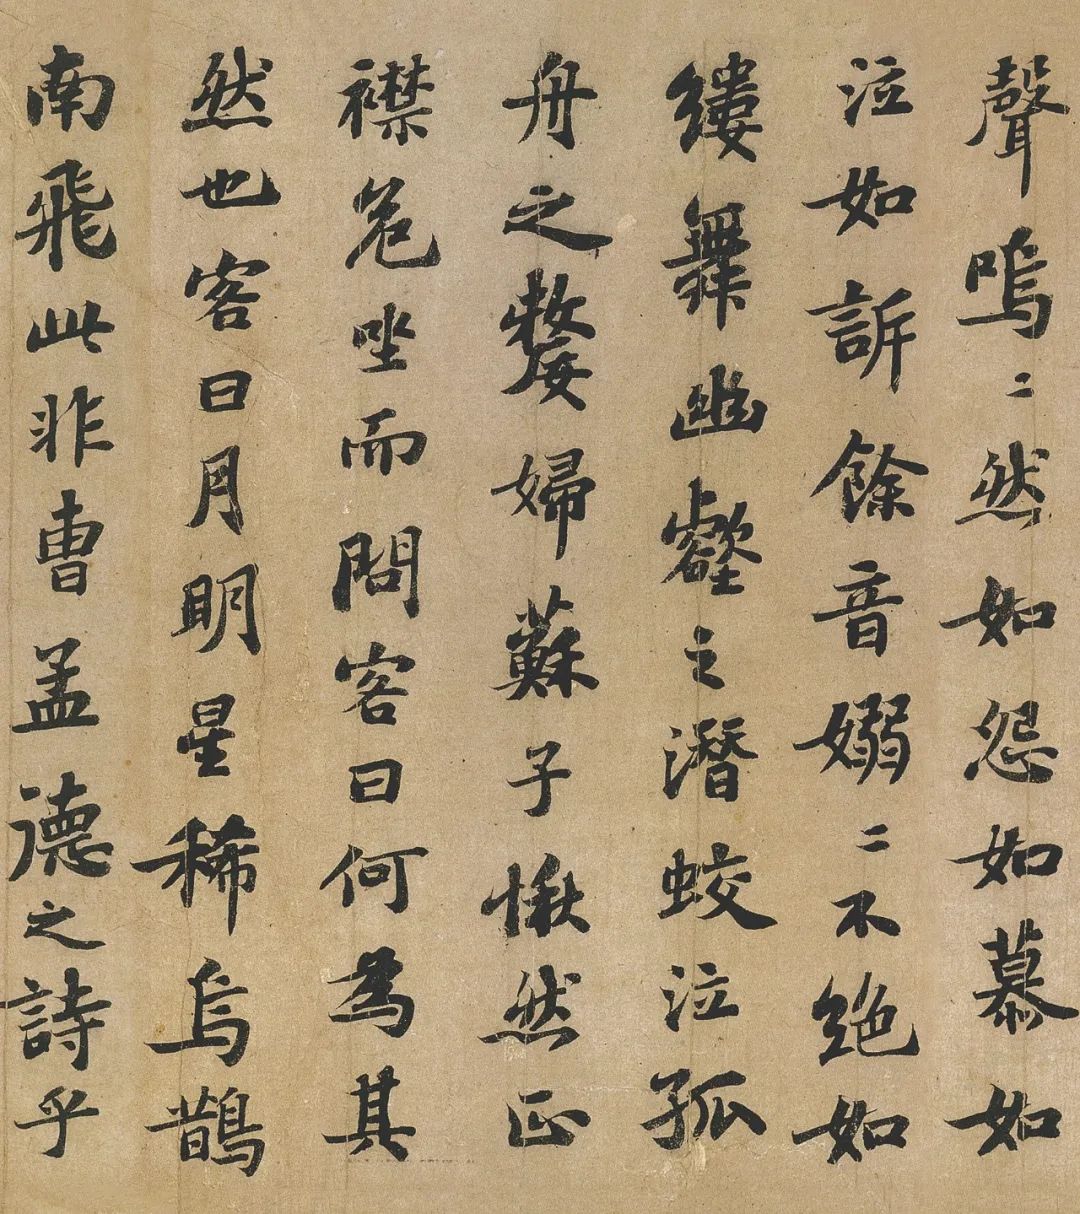 聲嗚〻然如怨如慕如
泣如訴餘音嫋〻不絶如
縷舞幽壑之潛蛟泣孤
舟之嫠婦蘇子愀然正
襟危坐而問客曰何為其
然也客曰月明星稀烏鵲
南飛此非曹孟德之詩乎